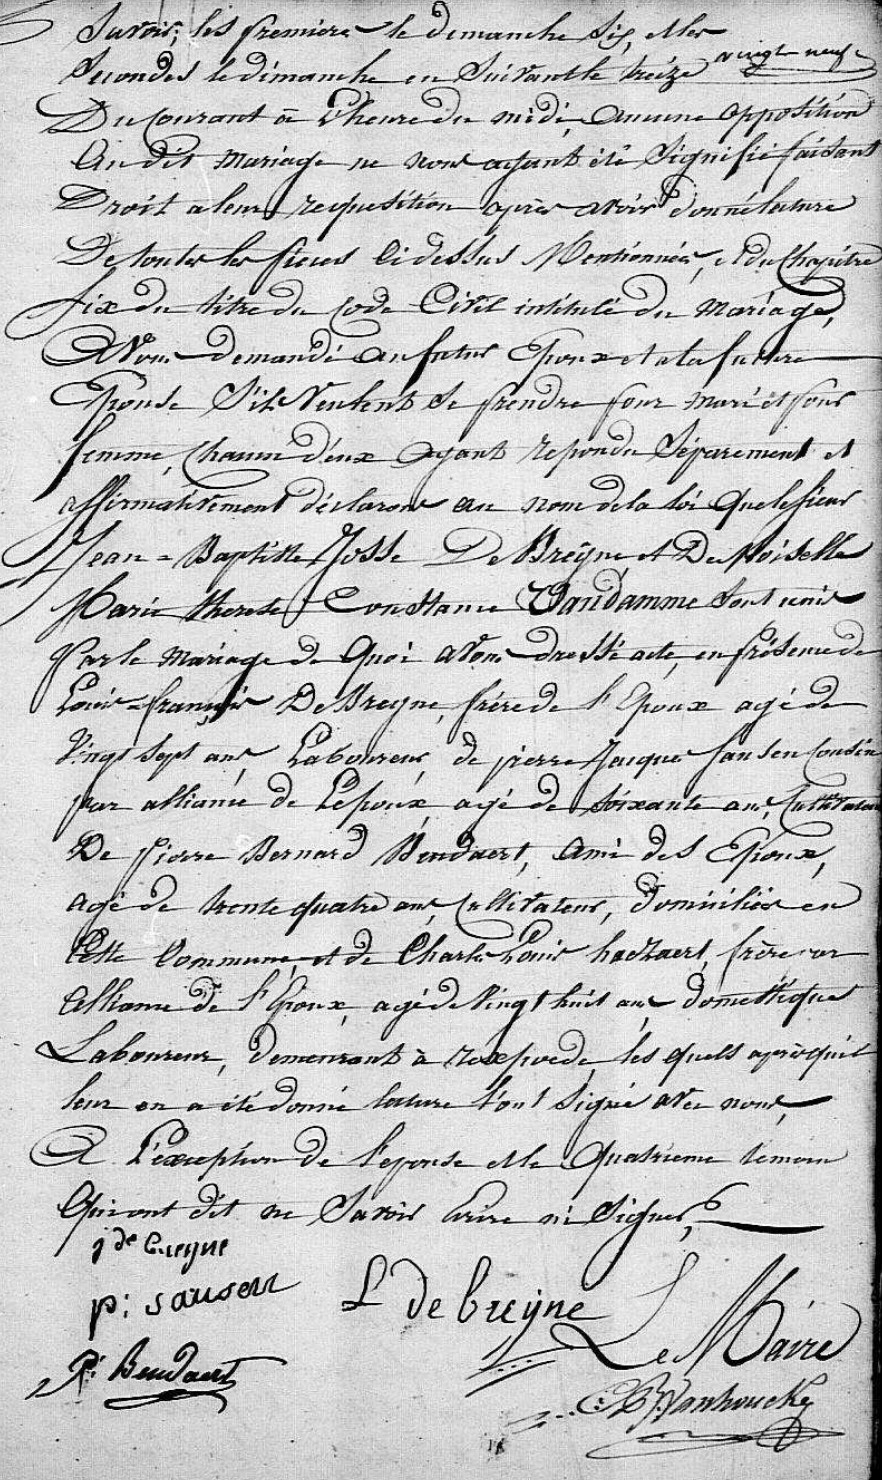 Savoir, les premiere le dimanche six, et les
Secondes le dimanche en Suivant le treize
vingt neuf
Du Courant à l'heure du midi, aucune opposition
Au dit mariage ne nous ayant été Signifié faisant
Droit a leur requisition après avoir donné lecture
De toutes les pieces Ci dessus Mentionnées, et du Chapitre
Six du titre du Code Civil intitulé du Mariage,
Avons demandé au futur Epoux et a la future
Epouse S'ils Veulent Se prendre pour mari et pour
femme, Chacun d'eux Ayant repondu Séparement et
affirmativement déclarons au nom de la loi que le Sieur
Jean-Baptiste Josse DeBreyne et DeMoiselle
Marie therese Constance Vandamme Sont unis
Par le mariage de Quoi avons dressé acte, en présence de
Louis-françois DeBreyne, frère de l'Epoux agé de
Vingt Sept ans, Laboureur, de pierre Jacques Sansen Cousin
par alliance de l'époux agé de Soixante ans, Cultivateur
De pierre Bernard Beudaert, Ami des Epoux,
agé de trente quatre ans, Cultivateur, domiciliés en
Cette Commune, et de Charles Louis hactzaert, frère par
alliance de l'Epoux, agé de Vingt huit ans, domestique
Laboureur, demeurant à rexpoede, les quels après qu'il
leur en a été donné lecture l'ont Signé avec nous,
A l'exception de l'epouse et le quatrieme temoin
Qui ont dit ne Savoir Ecrire ni Signer,
j de breyne
p: sansen
L debreyne
Le Maire
P: Beudaert
Vanhoucke